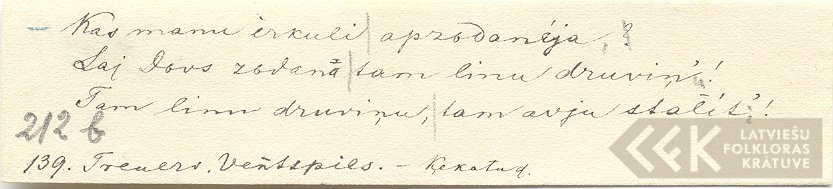 – Kas manu ērkuli apzodanēja,
Laj Dovs zodanā tam linu druviņ'!
Tam linu druviņu, tam avju stalīt'!
212 b
139. Treuers. Ventspils. – Ķekatud.
LATVIEŠU
FOLKLORAS
KRĀTUVE